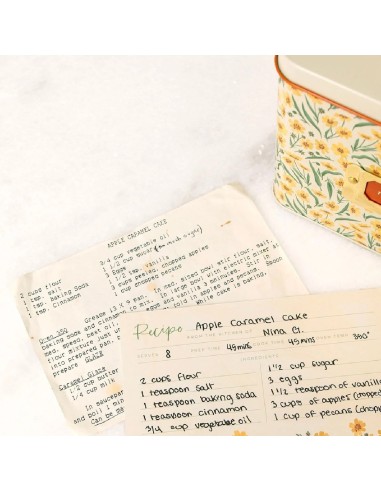 APPLE CARAMEL CAKE
2 cups flour
1 tsp. salt
1 tsp. Baking Soda
1 tsp. Cinnamon
3/4 cup vegetable oil
1 1/2 cup sugar (too much sugar)
3 Eggs
1 1/2 tsp. vanilla
3 cups peeled, chopped apples
1 cup chopped pecans
Oven 350
Grease 13 X 9 pan. In med. mixed bowl stir flour, salt,
baking soda and cinnamon to mix. In large bowl with electric mixer
med. speed, beat oil, eggs and vanilla 3 minutes.
flour mixture just apples and pecans. Spoon
into prepared pan. while cake is baking.
prepare GLAZE
Caramel Glaze
1/2 cup butter
1/2 cup milk
In saucepan
and boil 1 min
Can be ma
Recipe Apple Caramel Cake
FROM THE KITCHEN OF Nina G.
SERVES 8 PREP TIME 45mins COOK TIME 45mins 350°
INGREDIENTS
2 cups flour
1 teaspoon salt
1 teaspoon baking soda
1 teaspoon cinnamon
3/4 cup vegetable oil
1 1/2 cup sugar
3 eggs
1 1/2 teaspoon of vanilla
3 cups of apples (chopped
1 cup of pecans (chopped